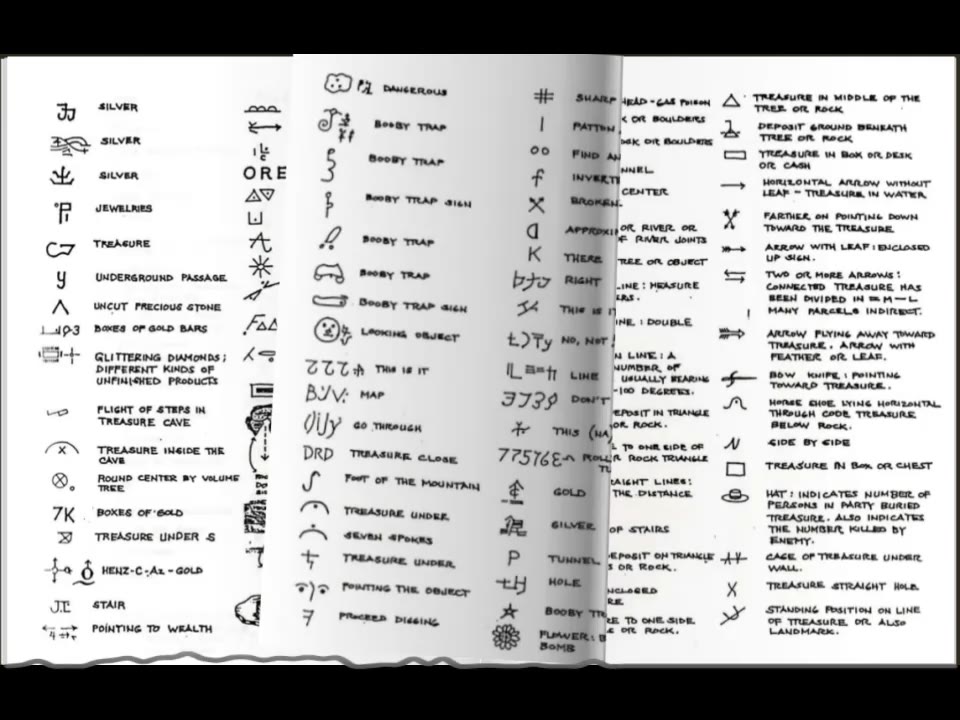 SILVER
SILVER
SILVER
JEWELRIES
TREASURE
UNDERGROUND PASSAGE
UNCUT PRECIOUS STONE
BOXES OF GOLD BARS
GLITTERING DIAMONDS;
DIFFERENT KINDS OF
UNFINISHED PRODUCTS
FLIGHT OF STEPS IN
TREASURE CAVE
TREASURE INSIDE THE
CAVE
ROUND CENTER BY VOLUME
TREE
7K BOXES OF GOLD
TREASURE UNDER S
HENZ-C-AZ-GOLD
STAIR
POINTING TO WEALTH
ORE
DANGEROUS
BOOBY TRAP
BOOBY TRAP
BOOBY TRAP SIGN
BOOBY TRAP
BOOBY TRAP
BOOBY TRAP SIGN
LOOKING OBJECT
THIS IS IT
MAP
GO THROUGH
DRD TREASURE CLOSE
FOOT OF THE MOUNTAIN
TREASURE UNDER
SEVEN SPOKES
TREASURE UNDER
POINTING THE OBJECT
7 PROCEED DIGGING
# SHARP
PATTON
FIND AN
f INVERT
BROKEN
APPROXI
K THERE
RIGHT
THIS IS IT
NO, NOT
LINE
DON'T
THIS (NA
GOLD
SILVER
P TUNNEL
HOLE
BOOBY TR
FLOWER: B
BOMB
HEAD-GAS POISON
K OR BOULDERS
OR BOULDERS
NNEL
CENTER
OR RIVER OR
F RIVER JOINTS
TREE OR OBJECT
LINE: MEASURE
ERS.
INE: DOUBLE
N LINE: A
NUMBER OF
USUALLY BEARING
-100 DEGREES.
EPOSIT IN TRIANGLE
OR ROCK.
L TO ONE SIDE OF
R ROCK TRIANGLE
RAIGHT LINES:
THE DISTANCE
OF STAIRS
EPOSIT ON TRIANGLE
S OR ROCK.
NCLOSED
RE
RE TO ONE SIDE
S OR ROCK.
TREASURE IN MIDDLE OF THE
TREE OR ROCK
DEPOSIT GROUND BENEATH
TREE OR ROCK
TREASURE IN BOX OR DESK
OR CASH
HORIZONTAL ARROW WITHOUT
LEAF - TREASURE IN WATER
FARTHER ON POINTING DOWN
TOWARD THE TREASURE.
ARROW WITH LEAF: ENCLOSED
UP SIGN.
TWO OR MORE ARROWS:
CONNECTED TREASURE HAS
BEEN DIVIDED IN = M-L
MANY PARCELS INDIRECT.
ARROW FLYING AWAY TOWARD
TREASURE. ARROW WITH
FEATHER OR LEAF.
BOW KNIFE: POINTING
TOWARD TREASURE.
HORSE SHOE LYING HORIZONTAL
THROUGH CODE TREASURE
BELOW ROCK.
N SIDE BY SIDE
TREASURE IN BOX OR CHEST
HAT: INDICATES NUMBER OF
PERSONS IN PARTY BURIED
TREASURE. ALSO INDICATES
THE NUMBER KILLED BY
ENEMY.
CAGE OF TREASURE UNDER
WALL.
X TREASURE STRAIGHT HOLE
STANDING POSITION ON LINE
OF TREASURE OR ALSO
LANDMARK.